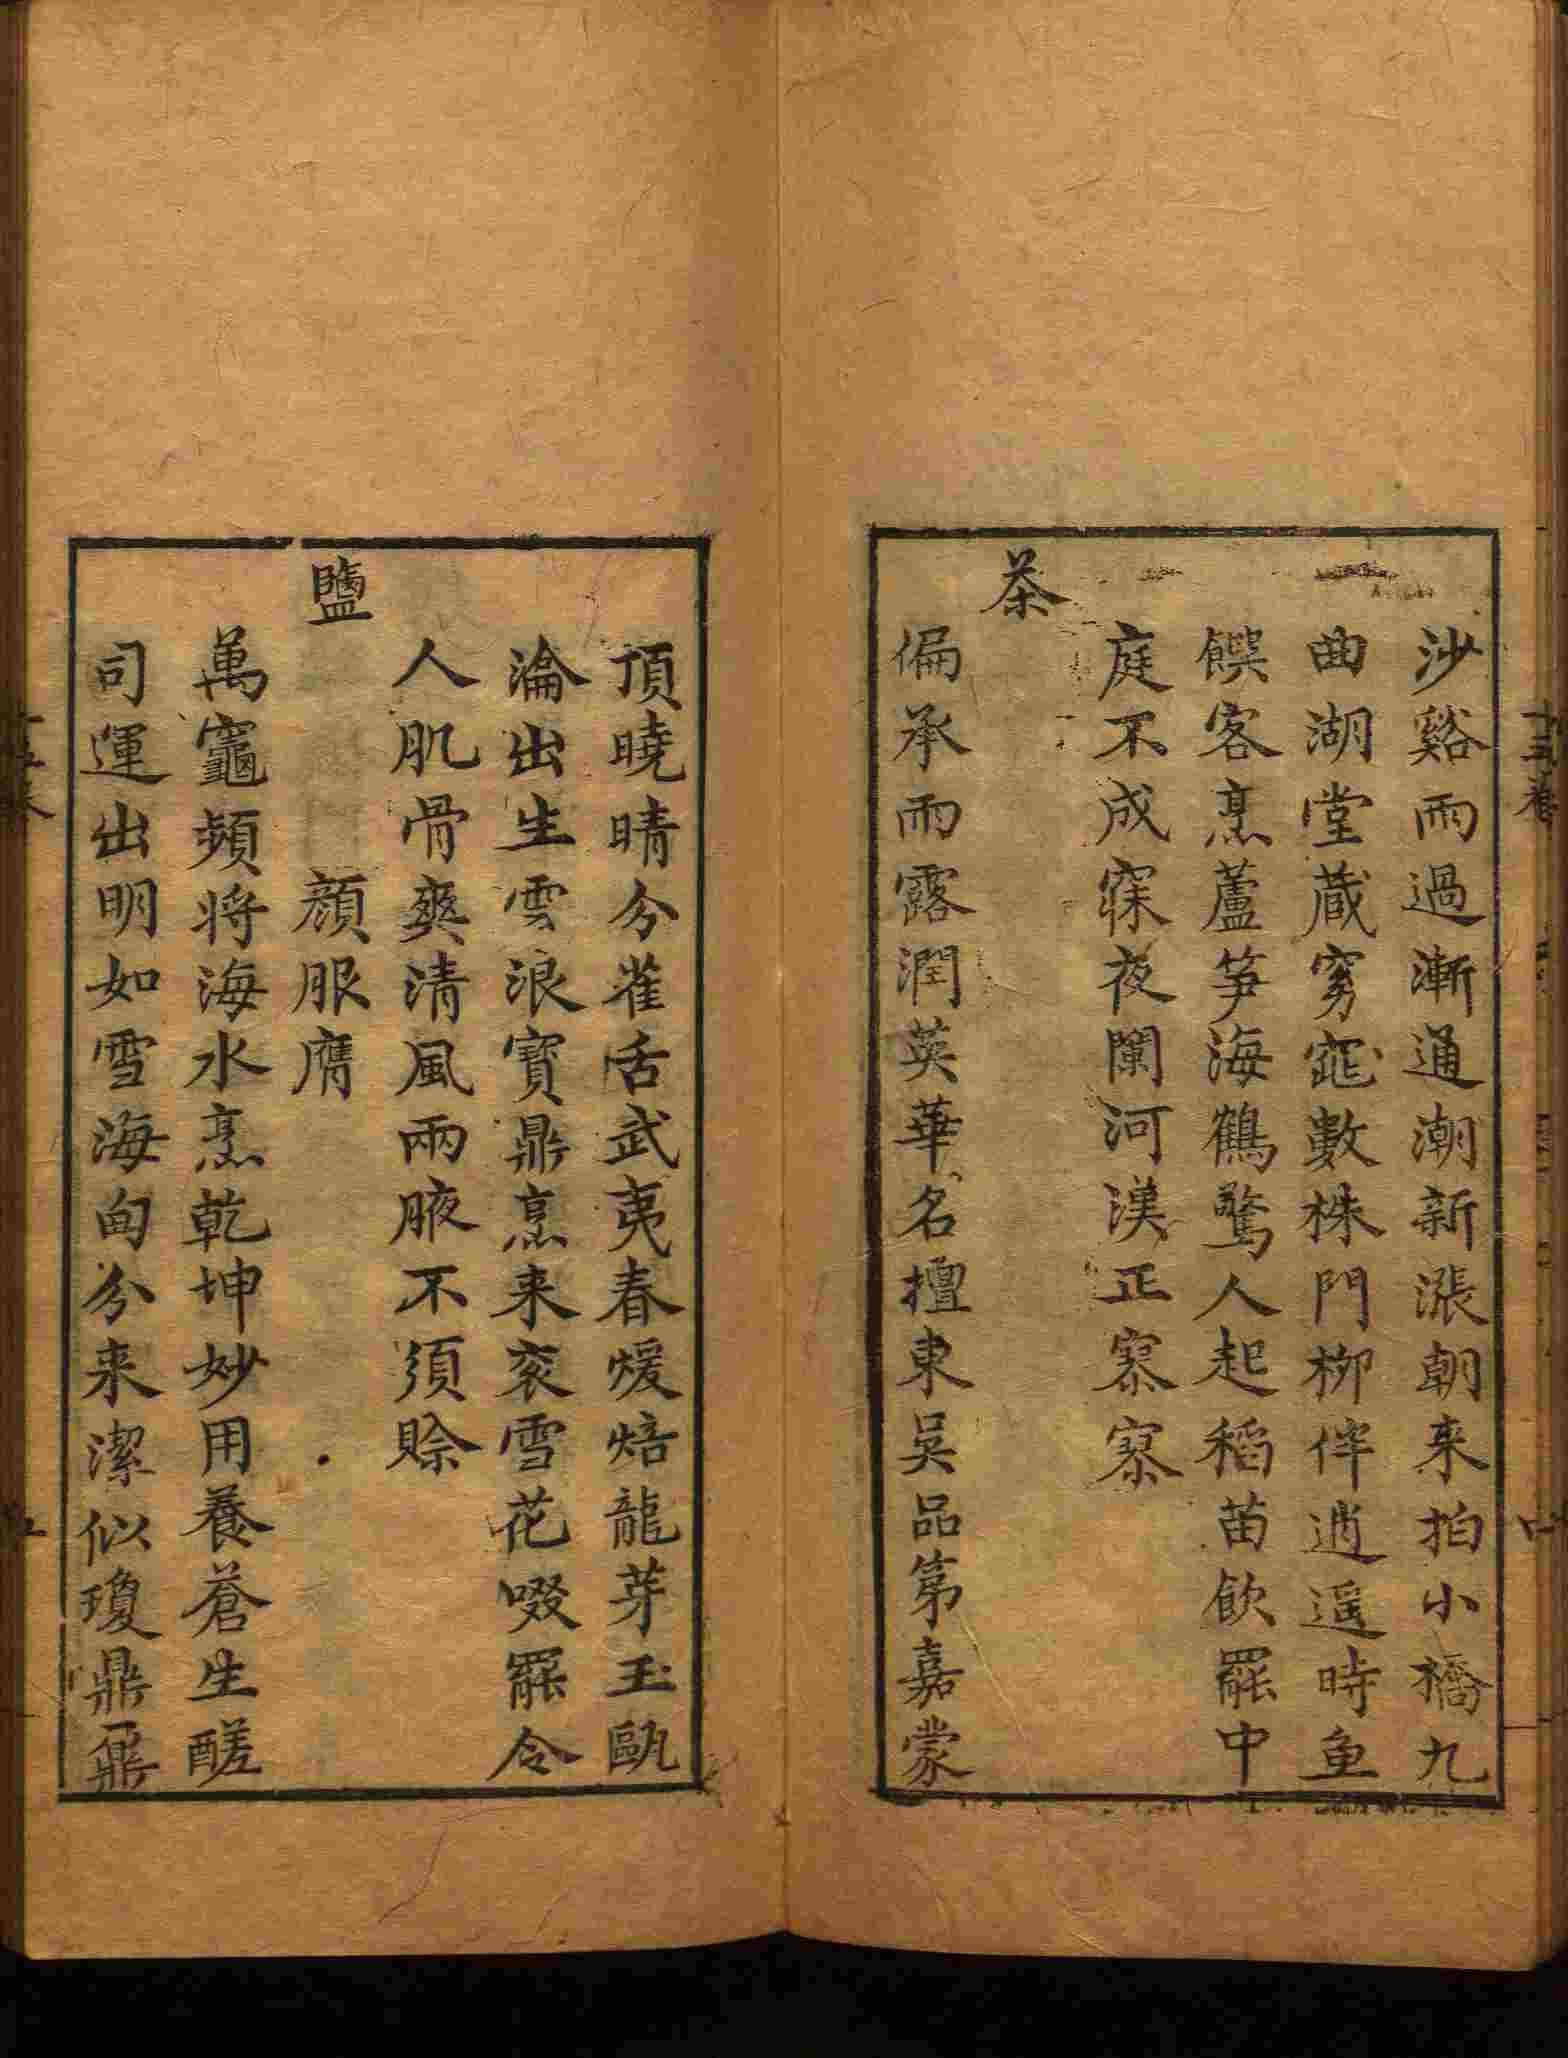 沙谿雨過漸通潮新漲朝来拍小橋九
曲湖堂蔵窈窕數株門柳伴逍遥時魚
饌客烹蘆笋海鶴驚人起稻苗飲罷中
庭不成寐夜闌河漢正寥寥
茶
偏承雨露潤英華名擅東吴品第嘉蒙
頂曉晴分雀舌武夷春煖焙龍芽玉甌
瀹出生雲浪寶鼎烹来衮雪花啜罷令
人肌骨爽清風兩腋不須賒
鹽
顔服膺
萬竈頻将海水烹乾坤妙用養蒼生醝
司運出明如雪海甸分来潔似瓊鼎鼐